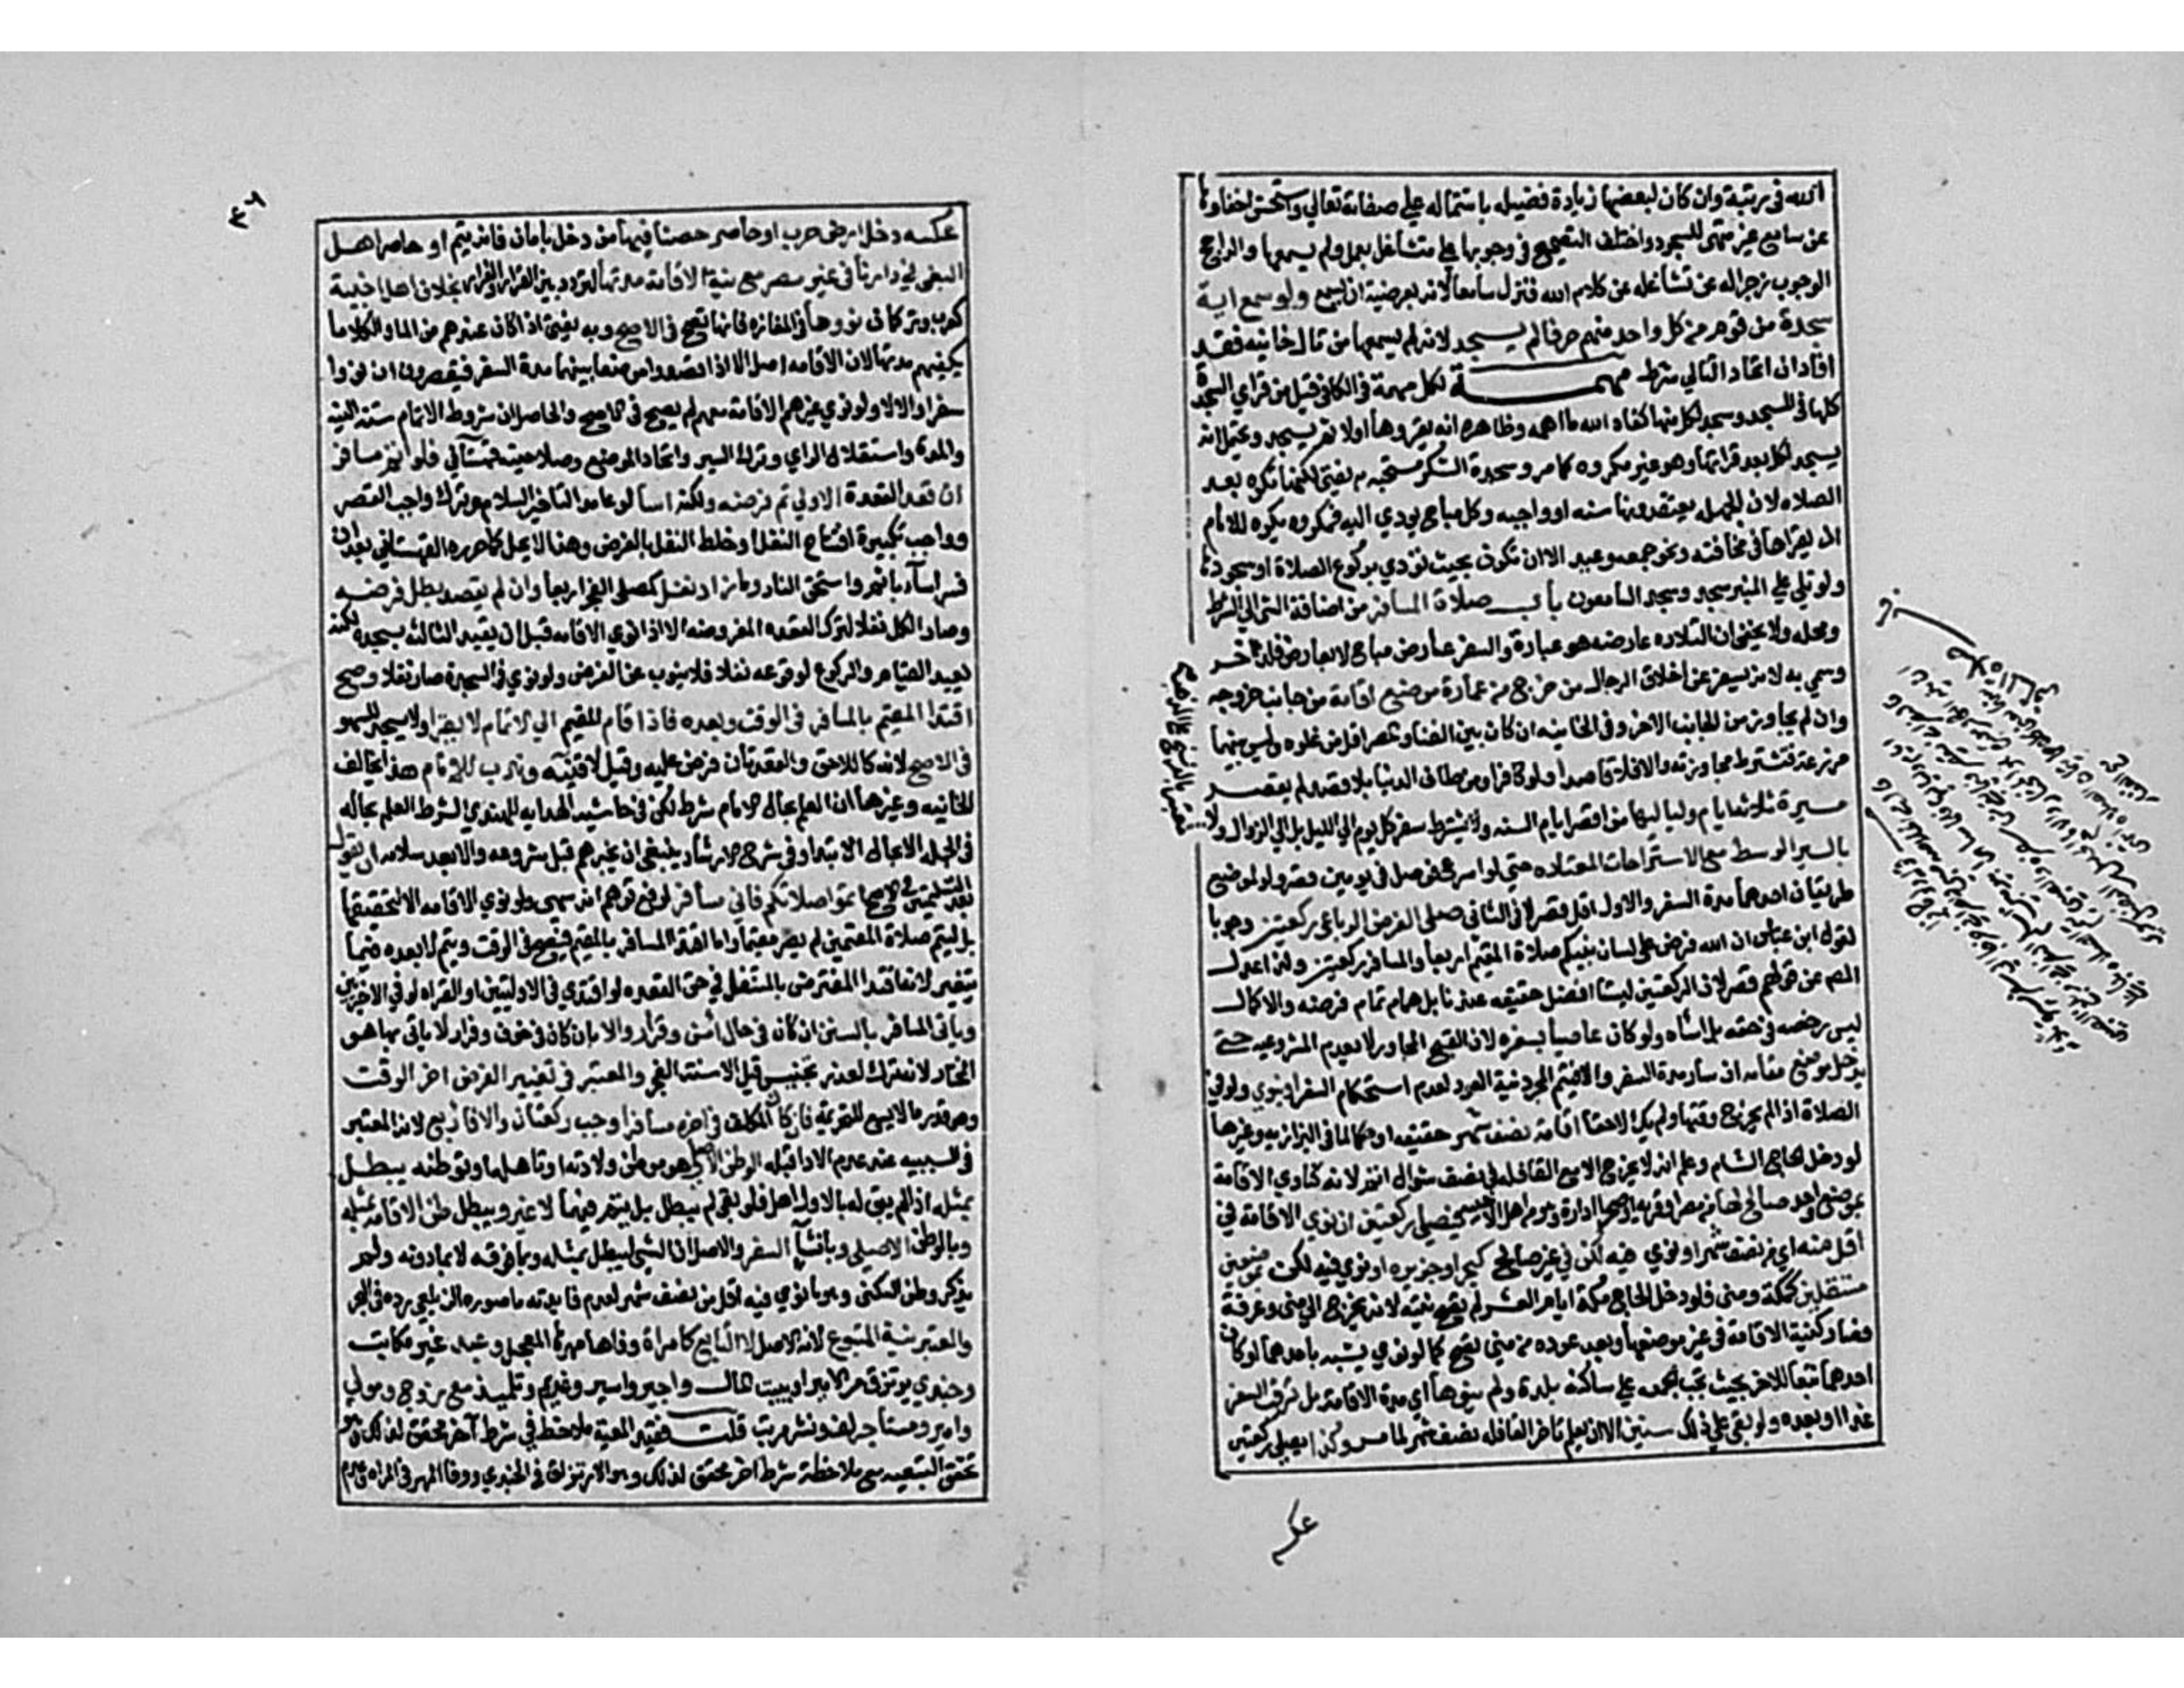 الله في رتبة وان كان لبعضها زيادة فضيله باشتماله علي صفاته تعالي ويستحسن اخفاوها
عن سامع غير متهئ للسجود واختلف التصحيح في وجوبها علي متشاغل بعمل ولم يسمعها والراجح
الوجوب زجرا له عن تشاغله عن كلام الله فنزل سامعا لانه بعرضية ان يسمع ولو سمع اية
سجدة من قوم من كل واحد منهم حرفا لم يسجد لانه لم يسمعها من تال خانيه فقد
افاد ان اتحاد التالي شرط مهمة لكل مهمة في الكافي قيل من قرا اي السجدة
كلها في المسجد وسجد لكل منها كفاه الله ما اهمه وظاهره انه يقروها اولا ثم يسجد ويحتمل انه
يسجد لكل بعد قراتها وهو غير مكروه كما مر وسجدة الشكر مستحبه به يفتي لكنها تكره بعد
الصلاه لان الجهله يعتقدونها سنه او واجبه وكل مباح يودي اليه فمكروه ويكره للامام
ان يقراها في مخافته ونحو جمعه وعيد الا ان تكون بحيث تودي بركوع الصلاة او سجودها
ولو تلي علي المنبر سجد وسجد السامعون باب صلاة المسافر من اضافة الشي الي شرطه
ومحله ولا يخفي ان التلاوه عارضه هو عبادة والسفر عارض مباح الا بعارض فلذا اخر
وسمي به لانه يسفر عن اخلاق الرجال من خرج من عمارة موضع اقامة من جانب خروجه
وان لم يجاوز من الجانب الاخر وفي الخانيه ان كان بين الفناء والمصر اقل من غلوه وليس بينهما
مزرعة تشترط مجاوزته والا فلا قاصدا ولو كافرا ومن طاف الدنيا بلا قصد لم يقصر
مسيرة ثلاثة ايام ولياليها من اقصر ايام السنه ولا يشترط سفر كل يوم الي الليل بل الي الزوال ولا
بالسير الوسط مع الاستراحات المعتاده حتي لو اسرع فوصل في يومين قصر ولو لموضع
طريقان احدهما مدة السفر والاول اقل قصر لا في الثاني صلي الفرض الرباعي ركعتين وجوبا
لقول ابن عباس ان الله فرض علي لسان نبيكم صلاة المقيم اربعا والمسافر ركعتين ولذا عدل
المصنف عن قولهم قصر لان الركعتين ليستا افضل حقيقه عندنا بل هما تمام فرضه والاكمال
ليس رخصه في حقه بل اساه ولو كان عاصيا بسفره لان القبح المجاور لا يعدم المشروعيه حتي
يدخل موضع مقامه ان سار مدة السفر والا فيتم لمجرد نية العود لعدم استحكام السفر او ينوي ولو في
الصلاة اذا لم يخرج وقتها ولم يك لاحقا اقامة نصف شهر حقيقه او حكما لما في البزازيه وغيرها
لو دخل الحاج الشام وعلم انه لا يخرج الا مع القافله في نصف شوال اتم لانه كناوي الاقامة
بموضع واحد صالح لها من مصر او قريه او صحرا دارنا وهو من اهل الاخبيه فيصلي ركعتين ان نوي الاقامة في
اقل منه اي من نصف شهر او نوي فيه لكن في غير صالح كبحر او جزيره او نوي فيه لكن بموضعين
مستقلين كمكة ومني فلو دخل الحاج مكة ايام العشر لم تصح نيته لانه يخرج الي مني وعرفة
فصار كنية الاقامة في غير موضعها وبعد عوده من مني تصح كما لو نوي مبيته باحدهما او كان
احدهما تبعا للاخر بحيث تجب الجمعه علي ساكنه بلدة ولم ينوها اي مدة الاقامة بل ترقب السفر
غدا او بعده ولو بقي علي ذلك سنين الا ان يعلم تاخر القافله نصف شهر لما مر وكذا يصلي ركعتين
عسكر
عسكر دخل ارض حرب او حاصر حصنا فيها من دخل بامان فانه يتم او حاصر اهل
البغي في دارنا في غير مصر مع نية الاقامة مدتها للتردد بين القرار والفرار بخلاف اهل اخبية
كعرب وتركمان نووها في المفازه فانها تصح في الاصح وبه يفتي اذا كان عندهم من الماء والكلاء ما
يكفيهم مدتها لان الاقامه اصل الا اذا قصدوا موضعا بينهما مدة السفر فيقصرون ان نووا
سفرا والا لا ولو نوي غيرهم الاقامة معهم لم يصح في الاصح والحاصل ان شروط الاتمام ستة النية
والمدة واستقلال الراي وترك السير واتحاد الموضع وصلاحيته قهستاني فلو اتم مسافر
ان قعد القعدة الاولي تم فرضه ولكنه اسا لو عامدا لتاخير السلام وترك واجب القصر
وواجب تكبيرة افتتاح النفل وخلط النفل بالفرض وهذا لا يحل كما حرره القهستاني بعد ان
فسر اساء باثم واستحق النار وما زاد نفل كمصلي الفجر اربعا وان لم يقعد بطل فرضه
وصار الكل نفلا لترك القعده المفروضه الا اذا نوي الاقامه قبل ان يقيد الثالثه بسجده لكنه
يعيد القيام والركوع لوقوعه نفلا فلا ينوب عن الفرض ولو نوي في السجدة صار نفلا وصح
اقتدا المقيم بالمسافر في الوقت وبعده فاذا قام المقيم الي الاتمام لا يقرا ولا يسجد للسهو
في الاصح لانه كاللاحق والقعدتان فرض عليه وقيل لا قنيه وندب للامام هذا يخالف
الخانيه وغيرها ان العلم بحال الامام شرط لكن في حاشية الهدايه للهندي الشرط العلم بحاله
في الجمله لا في حال الابتدا وفي شرح الارشاد ينبغي ان يخبرهم قبل شروعه والا بعد سلامه ان يقول
بعد التسليمتين في الاصح اتموا صلاتكم فاني مسافر لدفع توهم انه سهي ولو نوي الاقامه لا لتحقيقها
بل ليتم صلاة المقيمين لم يصر مقيما واما اقتدا المسافر بالمقيم فيصح في الوقت ويتم لا بعده فيما
يتغير لانه اقتدا المفترض بالمتنفل في حق القعده لو اقتدي في الاوليين او القراه لو في الاخريين
وياتي المسافر بالسنن ان كان في حال امن وقرار والا بان كان في خوف وفرار لا ياتي بها هو
المختار لانه ترك لعذر تجنيس قيل الا سنة الفجر والمعتبر في تغيير الفرض اخر الوقت
وهو قدر ما لا يسع التحريمة فان كان المكلف في اخره مسافرا وجب ركعتان والا فاربع لانه المعتبر
في السببيه عند عدم الادا قبله الوطن الاصلي هو موطن ولادته او تاهله او توطنه يبطل
بمثله اذا لم يبق له بالاول اهل فلو بقي لم يبطل بل يتم فيهما لا غير ويبطل وطن الاقامه بمثله
وبالوطن الاصلي وبانشاء السفر والاصل ان الشي يبطل بمثله وبما فوقه لا بما دونه ولم
يذكر وطن السكني وهو ما نوي فيه اقل من نصف شهر لعدم فايدته وما صوره الزيلعي رده في البحر
والمعتبر نية المتبوع لانه الاصل لا التابع كامراة وفاها مهرها المعجل وعبد غير مكاتب
وجندي يرتزق من الامير او بيت المال واجير واسير وغريم وتلميذ مع زوج ومولي
وامير ومستاجر لف ونشر مرتب قلت فقيد المعية ملاحظ في شرط اخر محقق لذلك
تحقق التبعيه مع ملاحظة شرط اخر محقق لذلك وهو الارتزاق في الجندي ووفا المهر في المراه